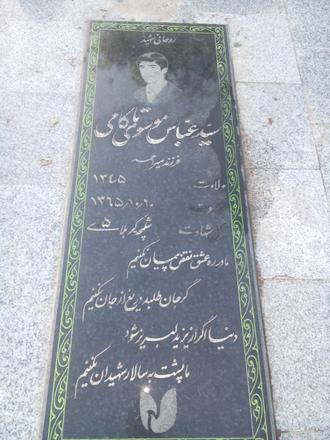 روحانی شهید
سید عباس موسوی ملکامی
فرزند میر
ولادت ۱۳۴۵
شهادت ۱۳۶۵/۱۰/۲۰
شلمچه کربلای ۵
ما در ره عشق نقض پیمان نکنیم
گر جان طلبد دریغ از جان نکنیم
دنیا اگر از یزید لبریز شود
ما پشت به سالار شهیدان نکنیم